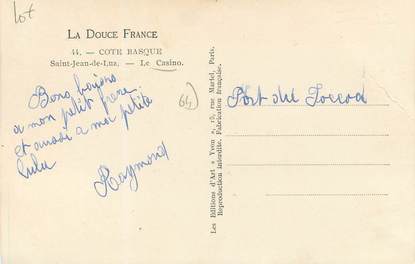 Lot
LA DOUCE FRANCE
44. — COTE BASQUE
Saint-Jean-de-Luz. — Le Casino.
Bons baisers
a mon petit frere
et aussi a ma petite
Lulu
Raymond
64
Les Editions d'Art « Yvon », 15, rue Martel, Paris.
Reproduction interdite. Fabrication française.
Port du